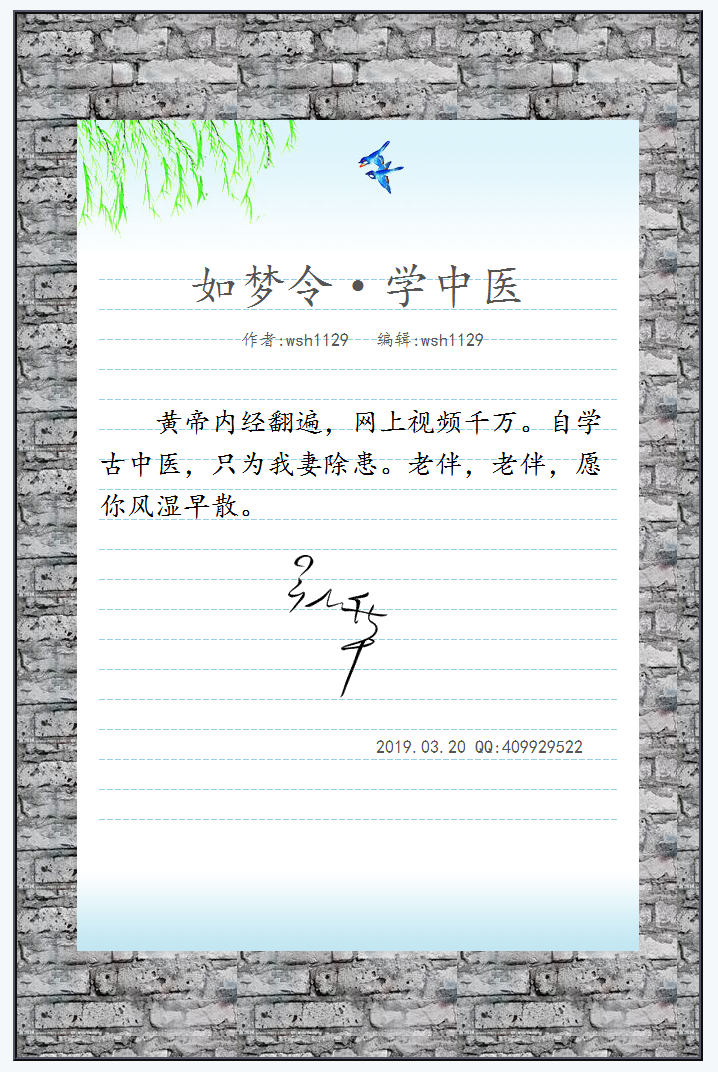 如梦令·学中医
作者:wsh1129 编辑:wsh1129
黄帝内经翻遍，网上视频千万。自学
古中医，只为我妻除患。老伴，老伴，愿
你风湿早散。
2019.03.20 QQ:409929522